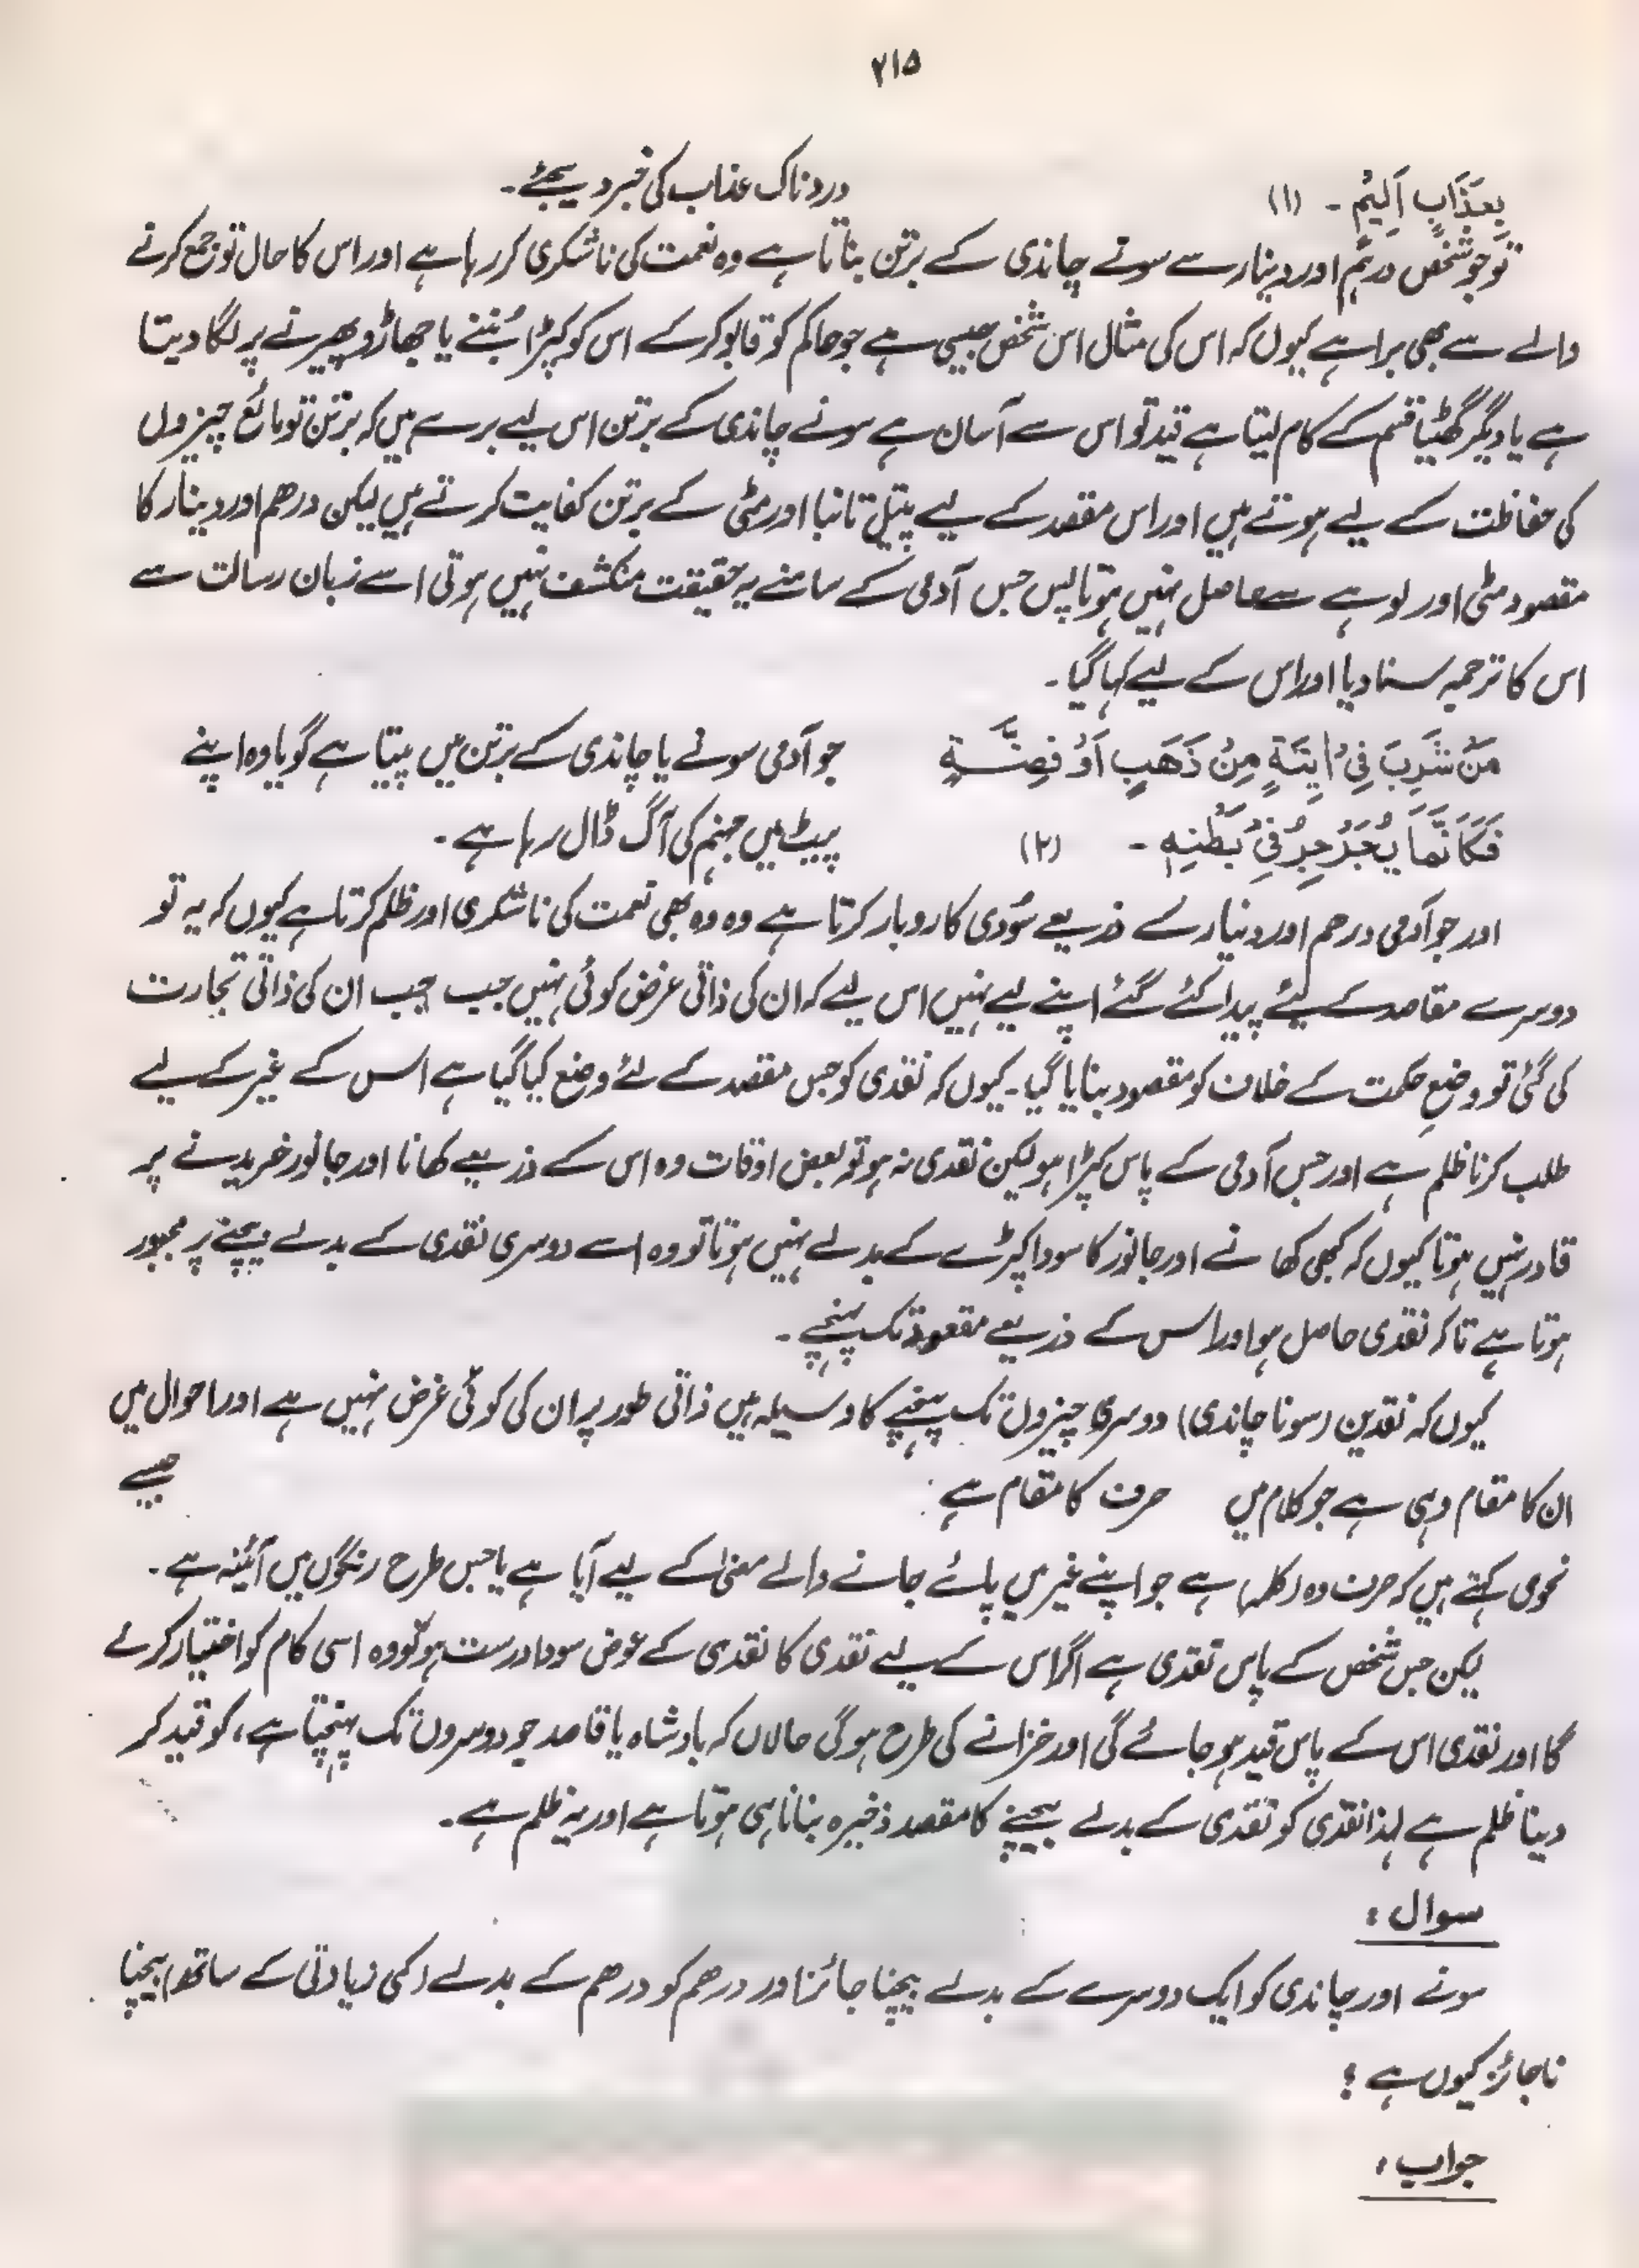 ۲۱۵
بِعَذَابٍ اَلِیْمٍ۔ (۱) دردناک عذاب کی خبر دیجئے۔
تو جو شخص درہم اور دینار سے سونے چاندی کے برتن بناتا ہے وہ نعمت کی ناشکری کر رہا ہے اور اس کا حال تو جمع کرنے
والے سے بھی برا ہے کیوں کہ اس کی مثال اس شخص جیسی ہے جو حاکم کو قابو کرکے اس کو کپڑا بُننے یا جھاڑو پھیرنے پر لگا دیتا
ہے یا دیگر گھٹیا قسم کے کام لیتا ہے قید تو اس سے آسان ہے سونے چاندی کے برتن اس لیے برے ہیں کہ برتن تو مائع چیزوں
کی حفاظت کے لیے ہوتے ہیں اور اس مقصد کے لیے پیتل تانبا اور مٹی کے برتن کفایت کرتے ہیں لیکن درھم اور دینار کا
مقصود مٹی اور لوہے سے حاصل نہیں ہوتا پس جس آدمی کے سامنے یہ حقیقت منکشف نہیں ہوتی اسے زبان رسالت سے
اس کا ترجمہ سنا دیا اور اس کے لیے کہا گیا۔
مَنْ شَرِبَ فِیْ اٰنِیَۃٍ مِنْ ذَھَبٍ اَوْ فِضَّۃٍ جو آدمی سونے یا چاندی کے برتن میں پیتا ہے گویا وہ اپنے
فَکَاَنَّمَا یُجَرْجِرُ فِیْ بَطْنِہٖ۔ (۲) پیٹ میں جہنم کی آگ ڈال رہا ہے۔
اور جو آدمی درھم اور دینار کے ذریعے سُودی کاروبار کرتا ہے وہ وہ بھی نعمت کی ناشکری اور ظلم کرتا ہے کیوں کہ یہ تو
دوسرے مقاصد کے لیئے پیدا کئے گئے اپنے لیے نہیں اس لیے کہ ان کی ذاتی غرض کوئی نہیں جیب جب ان کی ذاتی تجارت
کی گئی تو وضعِ حکمت کے خلاف کو مقصود بنایا گیا۔ کیوں کہ نقدی کو جس مقصد کے لئے وضع کیا گیا ہے اس کے غیر کے لیے
طلب کرنا ظلم ہے اور جس آدمی کے پاس کپڑا ہو لیکن نقدی نہ ہو تو بعض اوقات وہ اس کے ذریعے کھانا اور جانور خریدنے پر
قادر نہیں ہوتا کیوں کہ کبھی کھانے اور جانور کا سودا کپڑے کے بدلے نہیں ہوتا تو وہ اسے دوسری نقدی کے بدلے بیچنے پر مجبور
ہوتا ہے تاکہ نقدی حاصل ہو اور اس کے ذریعے مقصود تک پہنچے۔
کیوں کہ نقدین (سونا چاندی) دوسری چیزوں تک پہنچنے کا وسیلہ ہیں ذاتی طور پر ان کی کوئی غرض نہیں ہے اور احوال میں
ان کا مقام وہی ہے جو کلام میں حرف کا مقام ہے جیسے
نحوی کہتے ہیں کہ حرف وہ (کلمہ) ہے جو اپنے غیر میں پائے جانے والے معنیٰ کے لیے آیا ہے یا جس طرح رنگوں میں آئینہ ہے۔
لیکن جس شخص کے پاس نقدی ہے اگر اس کے لیے نقدی کا نقدی کے عوض سودا درست ہو تو وہ اسی کام کو اختیار کرلے
گا اور نقدی اس کے پاس قید ہو جائے گی اور خزانے کی طرح ہوگی حالاں کہ بادشاہ یا قاصد جو دوسروں تک پہنچتا ہے، کو قید کر
دینا ظلم ہے لہذا نقدی کو نقدی کے بدلے بیچنے کا مقصد ذخیرہ بنانا ہی ہوتا ہے اور یہ ظلم ہے۔
سوال:
سونے اور چاندی کو ایک دوسرے کے بدلے بیچنا جائز اور درھم کو درھم کے بدلے (کمی زیادتی کے ساتھ) بیچنا
ناجائز کیوں ہے؟
جواب: